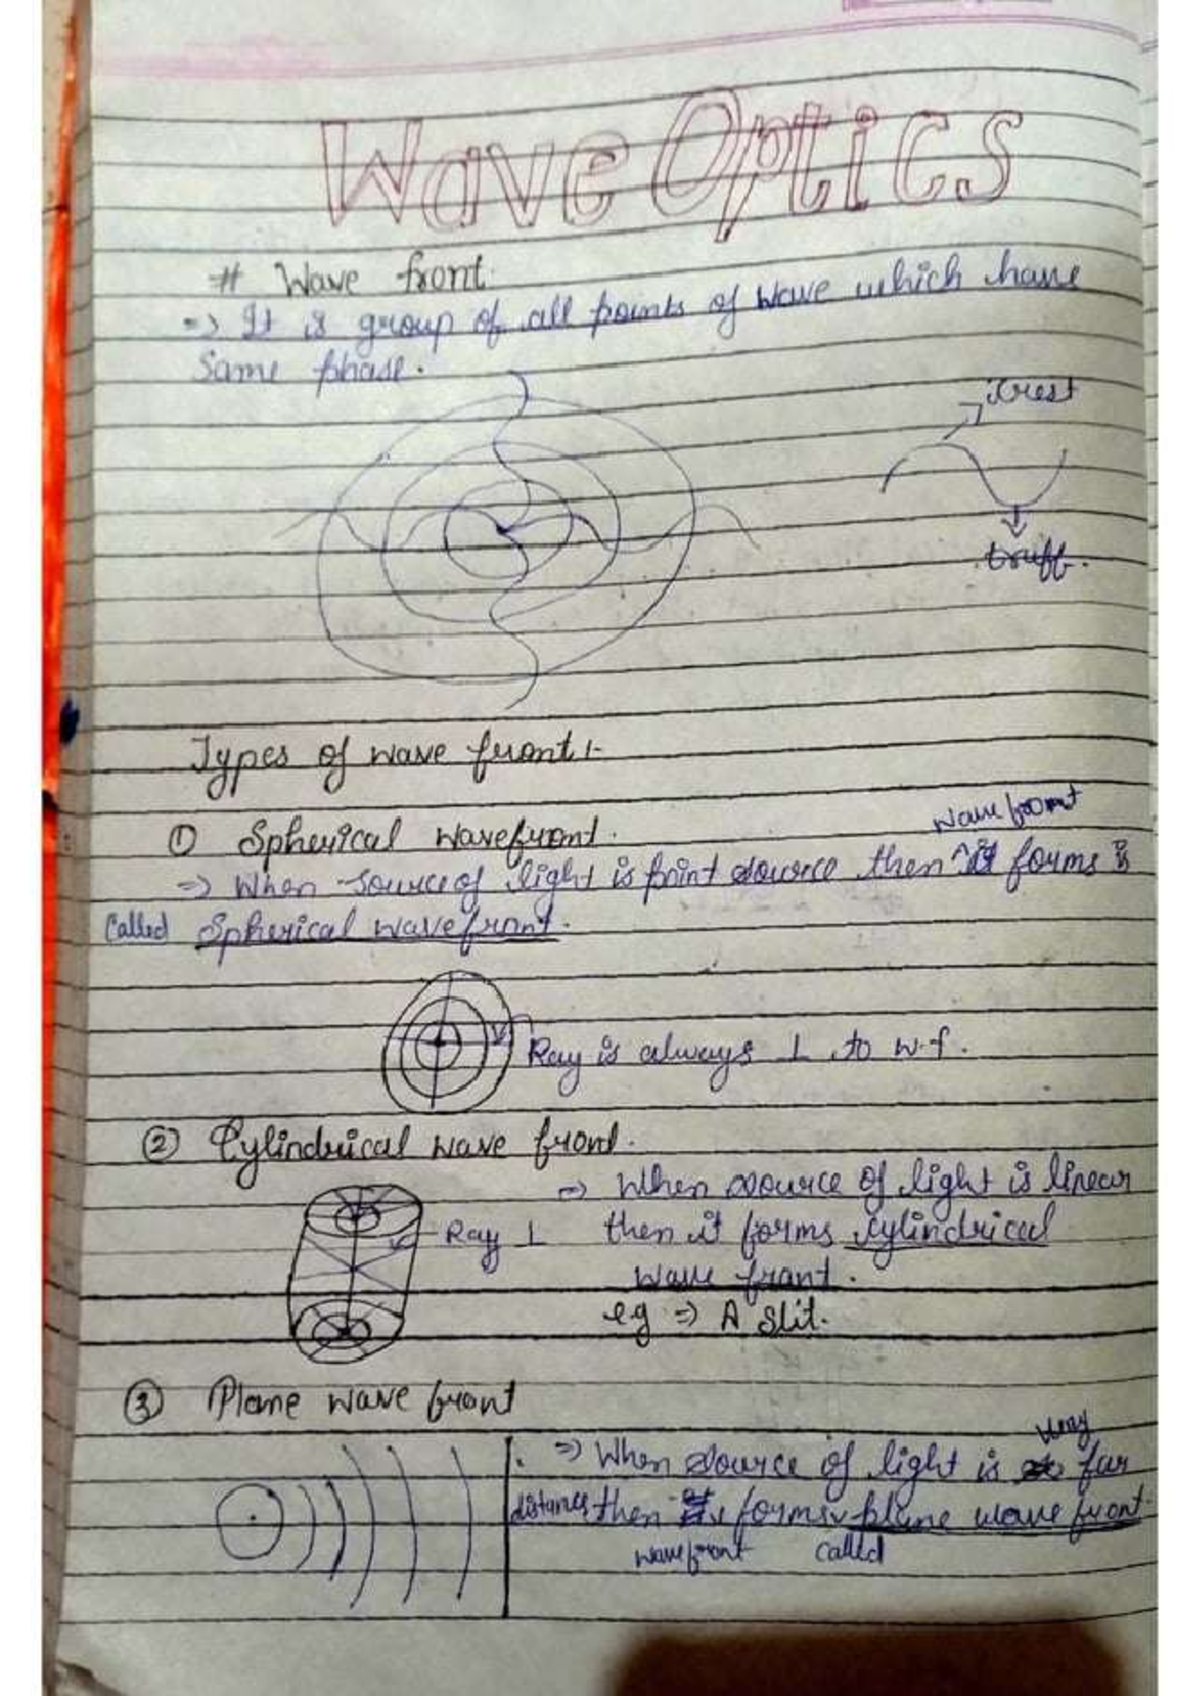 Wave Optics
# Wave front.
=> It is group of all points of wave which have
Same phase.
crest
truff.
Types of wave front :-
① Spherical wavefront.
wavefront
=> When source of light is point source then ^ forms is
called Spherical wavefront.
Ray is always ⊥ to w.f.
② Cylindrical wave front.
=> When source of light is linear
Ray ⊥ then it forms cylindrical
wave front.
eg => A slit.
③ Plane wave front
very
=> When source of light is far
distance then forms plane wave front.
wavefront called